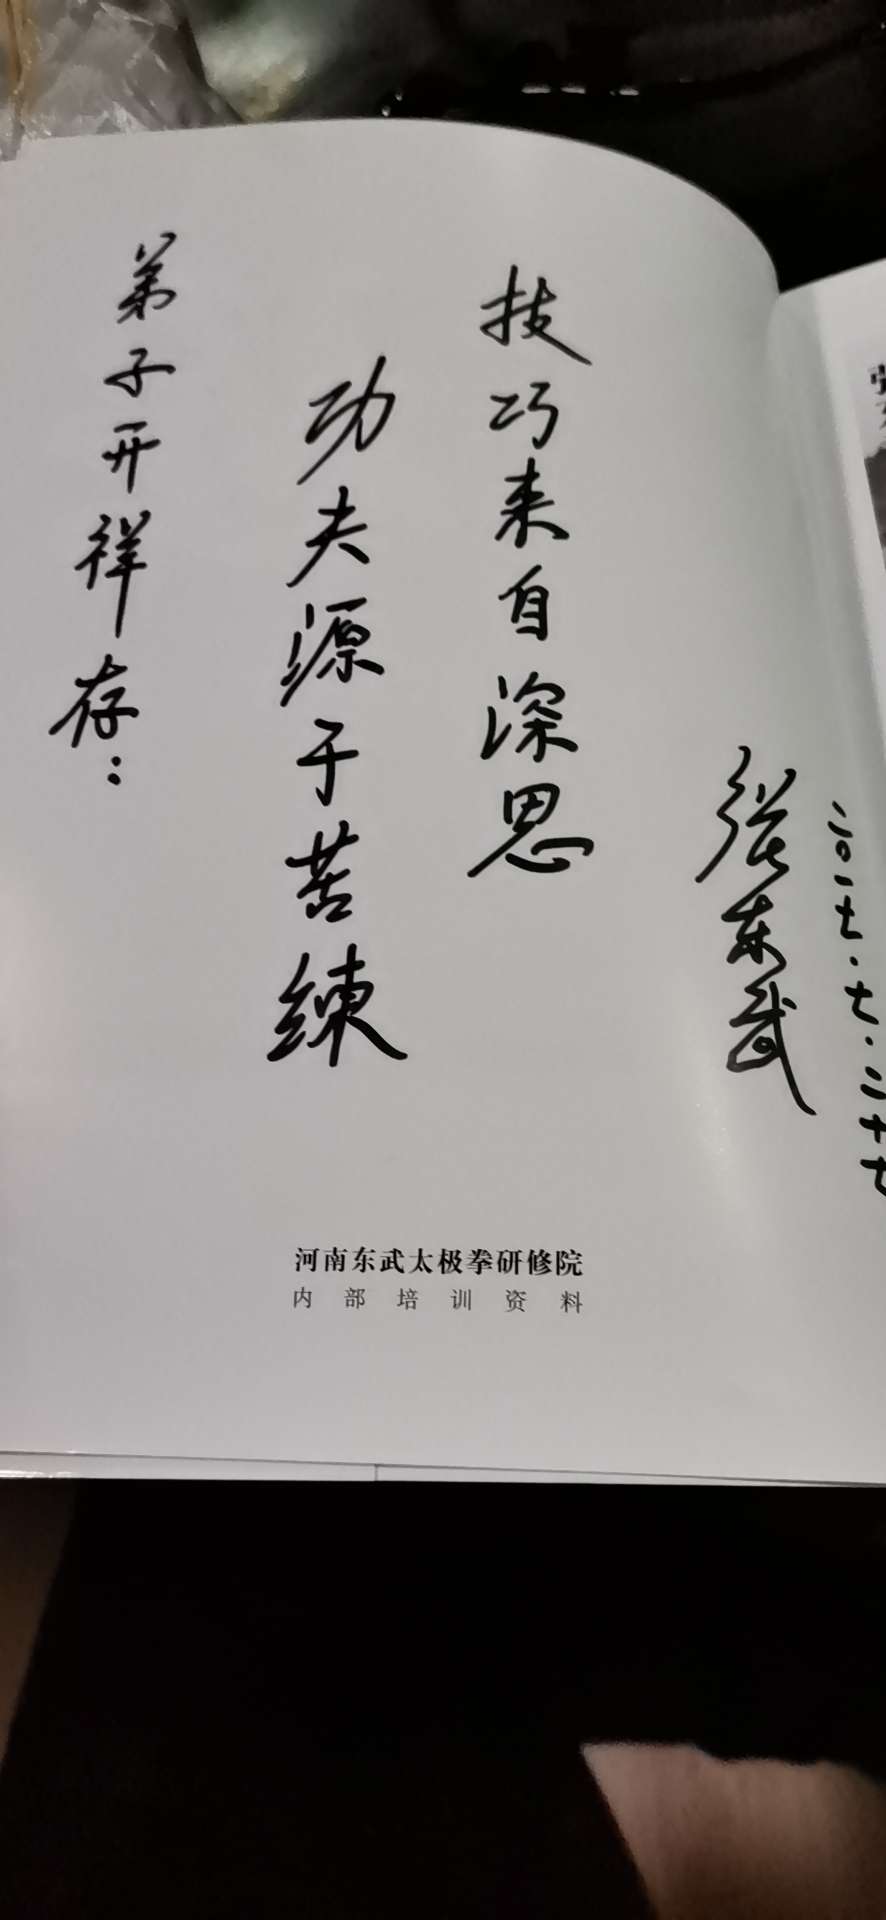 弟子开祥存：
功夫源于苦練
技巧来自深思
張东武
二〇一七.七.二十七
河南东武太极拳研修院
内部培训资料